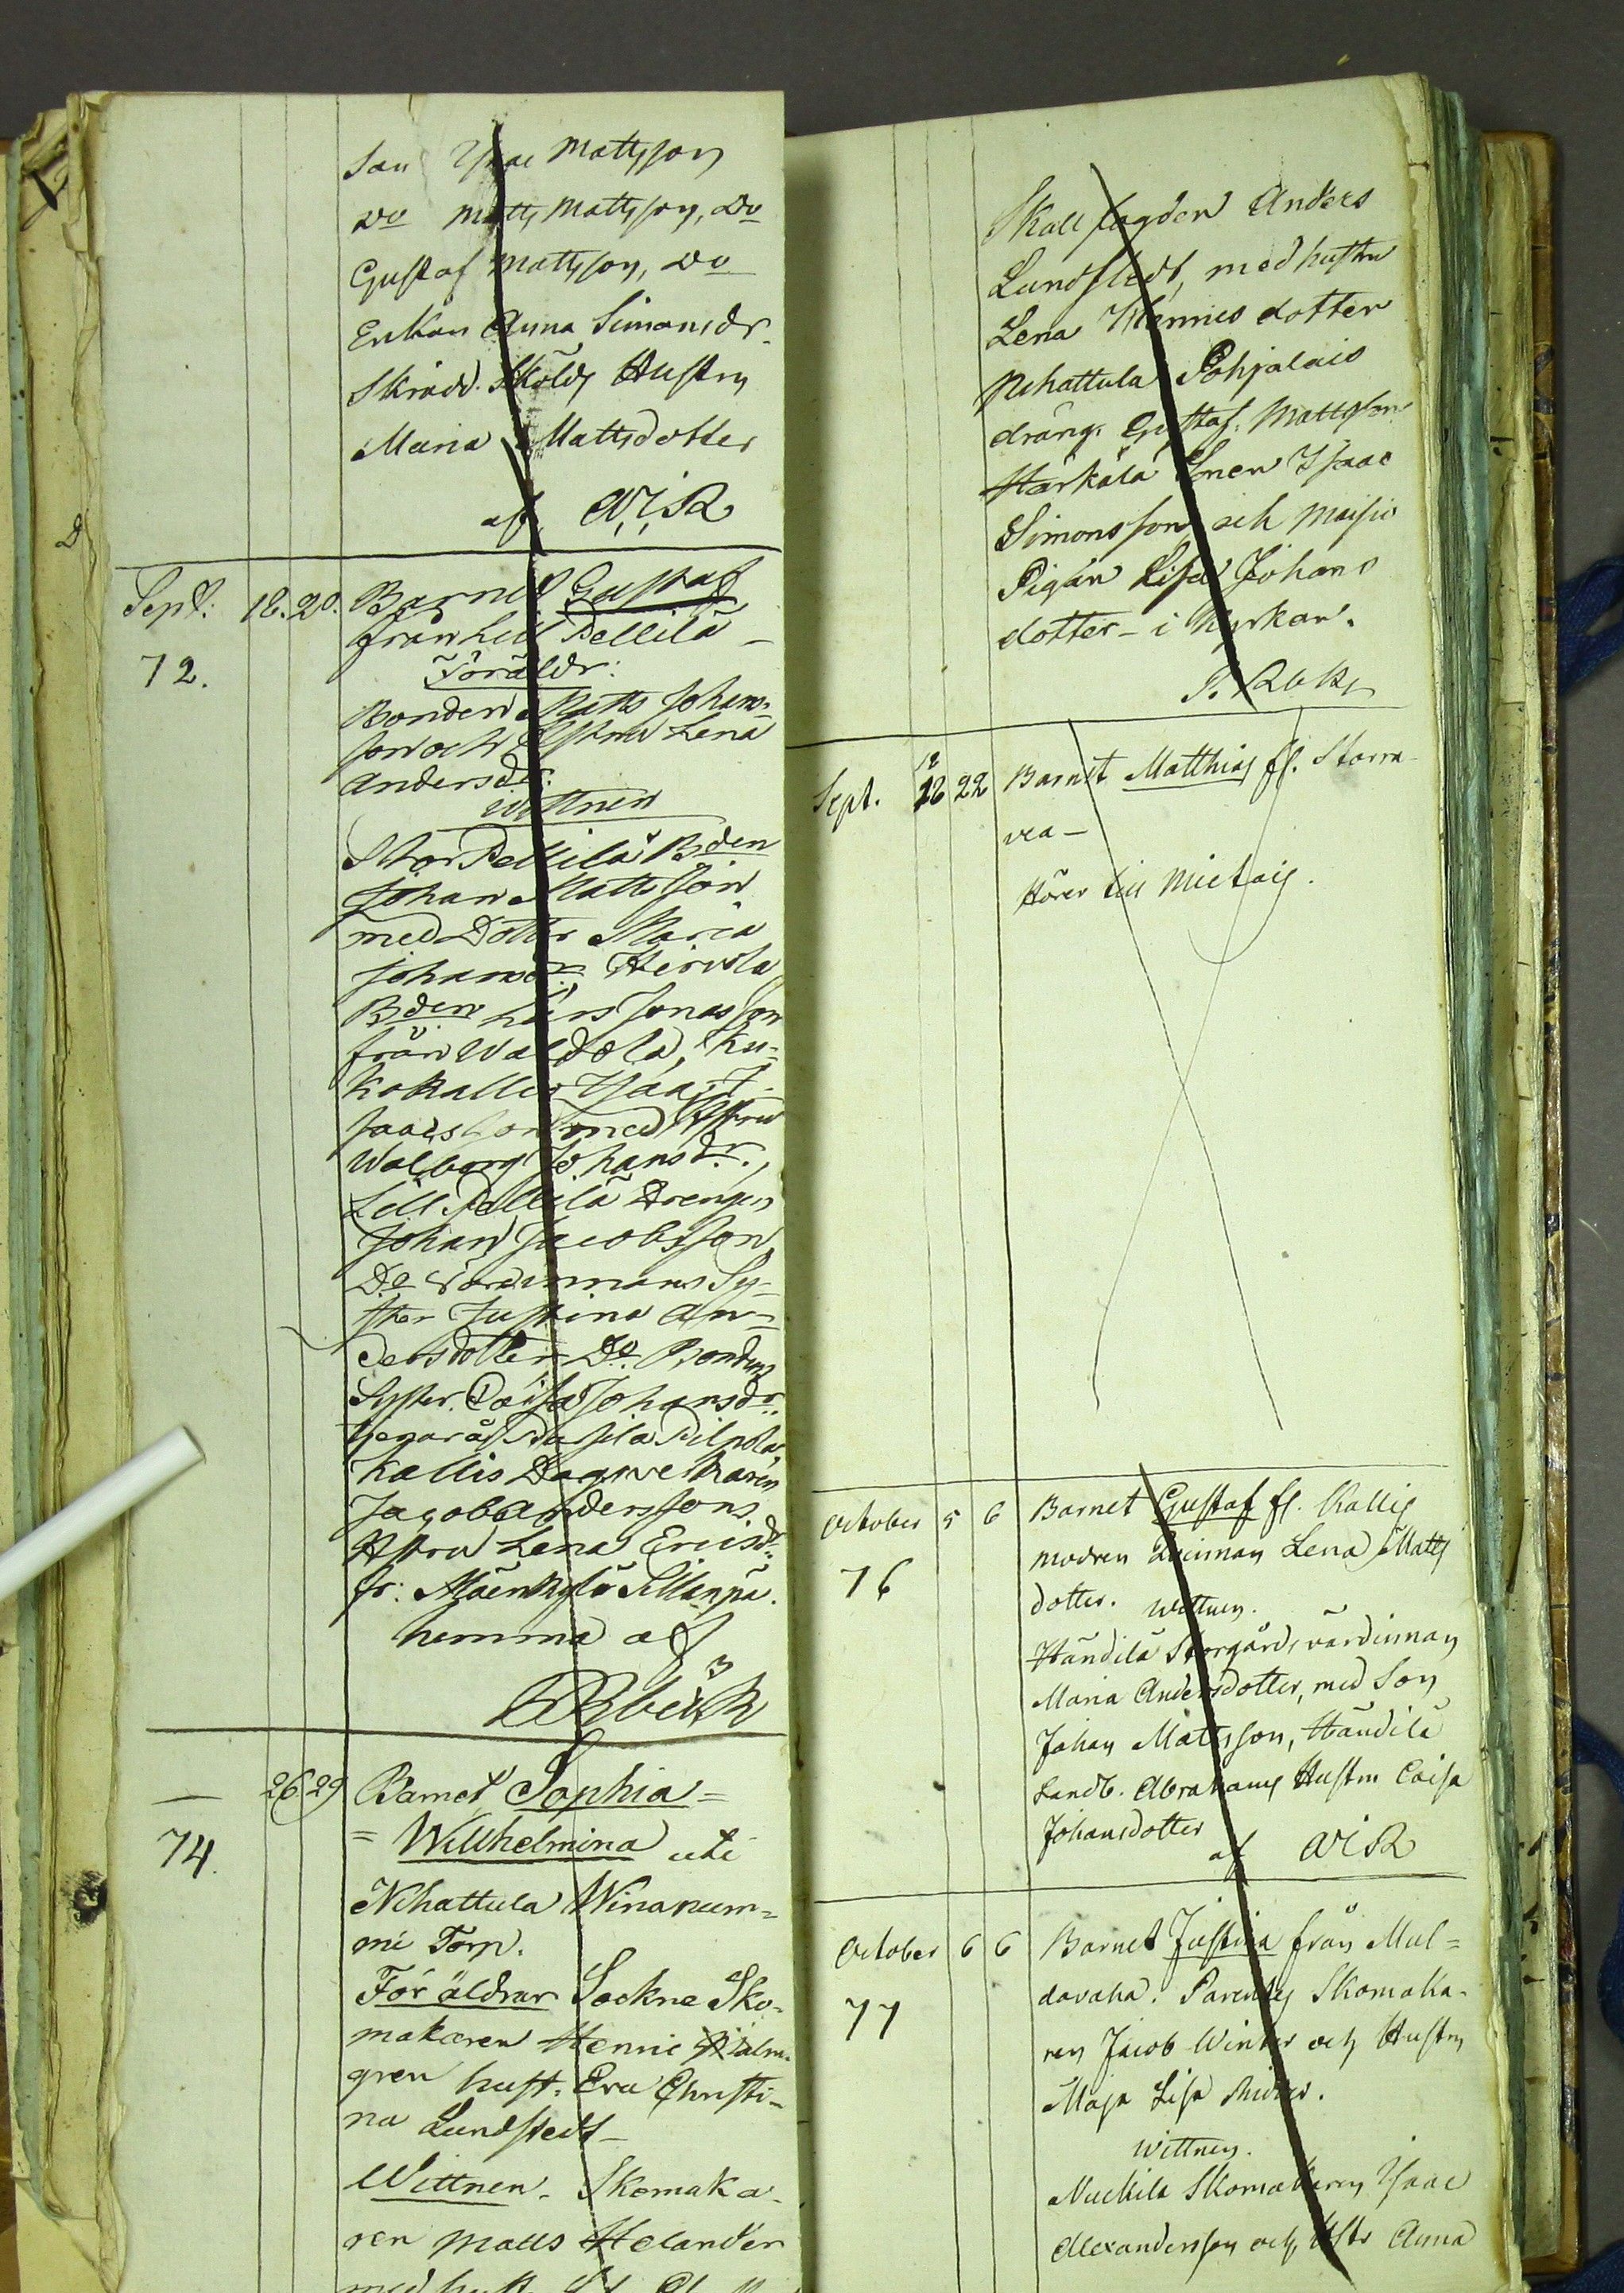 Son Isaac Mattsson
Do Matts Mattsson, Do
Gustaf Mattsson, Do
Enkan Anna Simonsdr.
Skrädd. Skölds Hustru
Maria Mattsdotter
af
Sept: 18. 20. Barnet Gustaf
från Lill Pellilä –
72.
Föräldr:
Bonden Matts Johans-
son och Hstru Lena
Andersdr:
Wittnen
Stor Pellilä Bden
Johan Mattsson
med Dotter Maria
Johansdr, Heivola
Bden Lars Jonasson
från Waldola, Ku-
kokallio Isaac I-
saacsson med Hstru
Walborg Johansdr.,
Lill Pellilä Drengen
Johan Jacobsson
Do Värdinnans Sy-
ster Justina An-
dersdotter Do Bondens
Syster Caisa Johansdr.
Kallis Dagsve Karen
Jacob Anderssons
Hstru Lena Ericsdr.
fr: Mäenkylä Sillanpä.
hemma af
— 26 29 Barnet Sophia =
= Willhelmina uti
74.
Nihattula Winanum=
mi Torp.
Föräldrar Sockne Sko-
makaren Henric Malm-
gren hust. Eva Christi-
na Lundstedt –
Wittnen. Skomaka-
ren Matts Helander
med hust.
Skallfogden Anders
Lundstedt, med hustru
Lena Hennics dotter
Nihattula Pohjalais
dräng. Gustaf Mattsson
Härkälä Sonen Isaac
Simonsson och Maisio
Pigan Lisa Johans
dotter – i Kyrkan.
Sept. 18 22 Barnet Matthias fr. Storra-
12
vea –
Hörer till Mietois.
October 5 6 Barnet Gustaf fr. Kallis
76
modren Qvinnan Lena Matts
dotter. Wittnen.
Händilä Storgårds värdinnan
Maria Andersdotter, med Son
Johan Mattsson, Händilä
Landb. Abrahams Hustru Caisa
Johansdotter
af
October 6 6 Barnet Justina från Mul=
77
davaha. Parentes Skomaka-
ren Jacob Winter och Hustru
Maja Lisa
Wittnen.
Nuckila Skomakaren Isaac
Alexandersson och Hstr Anna